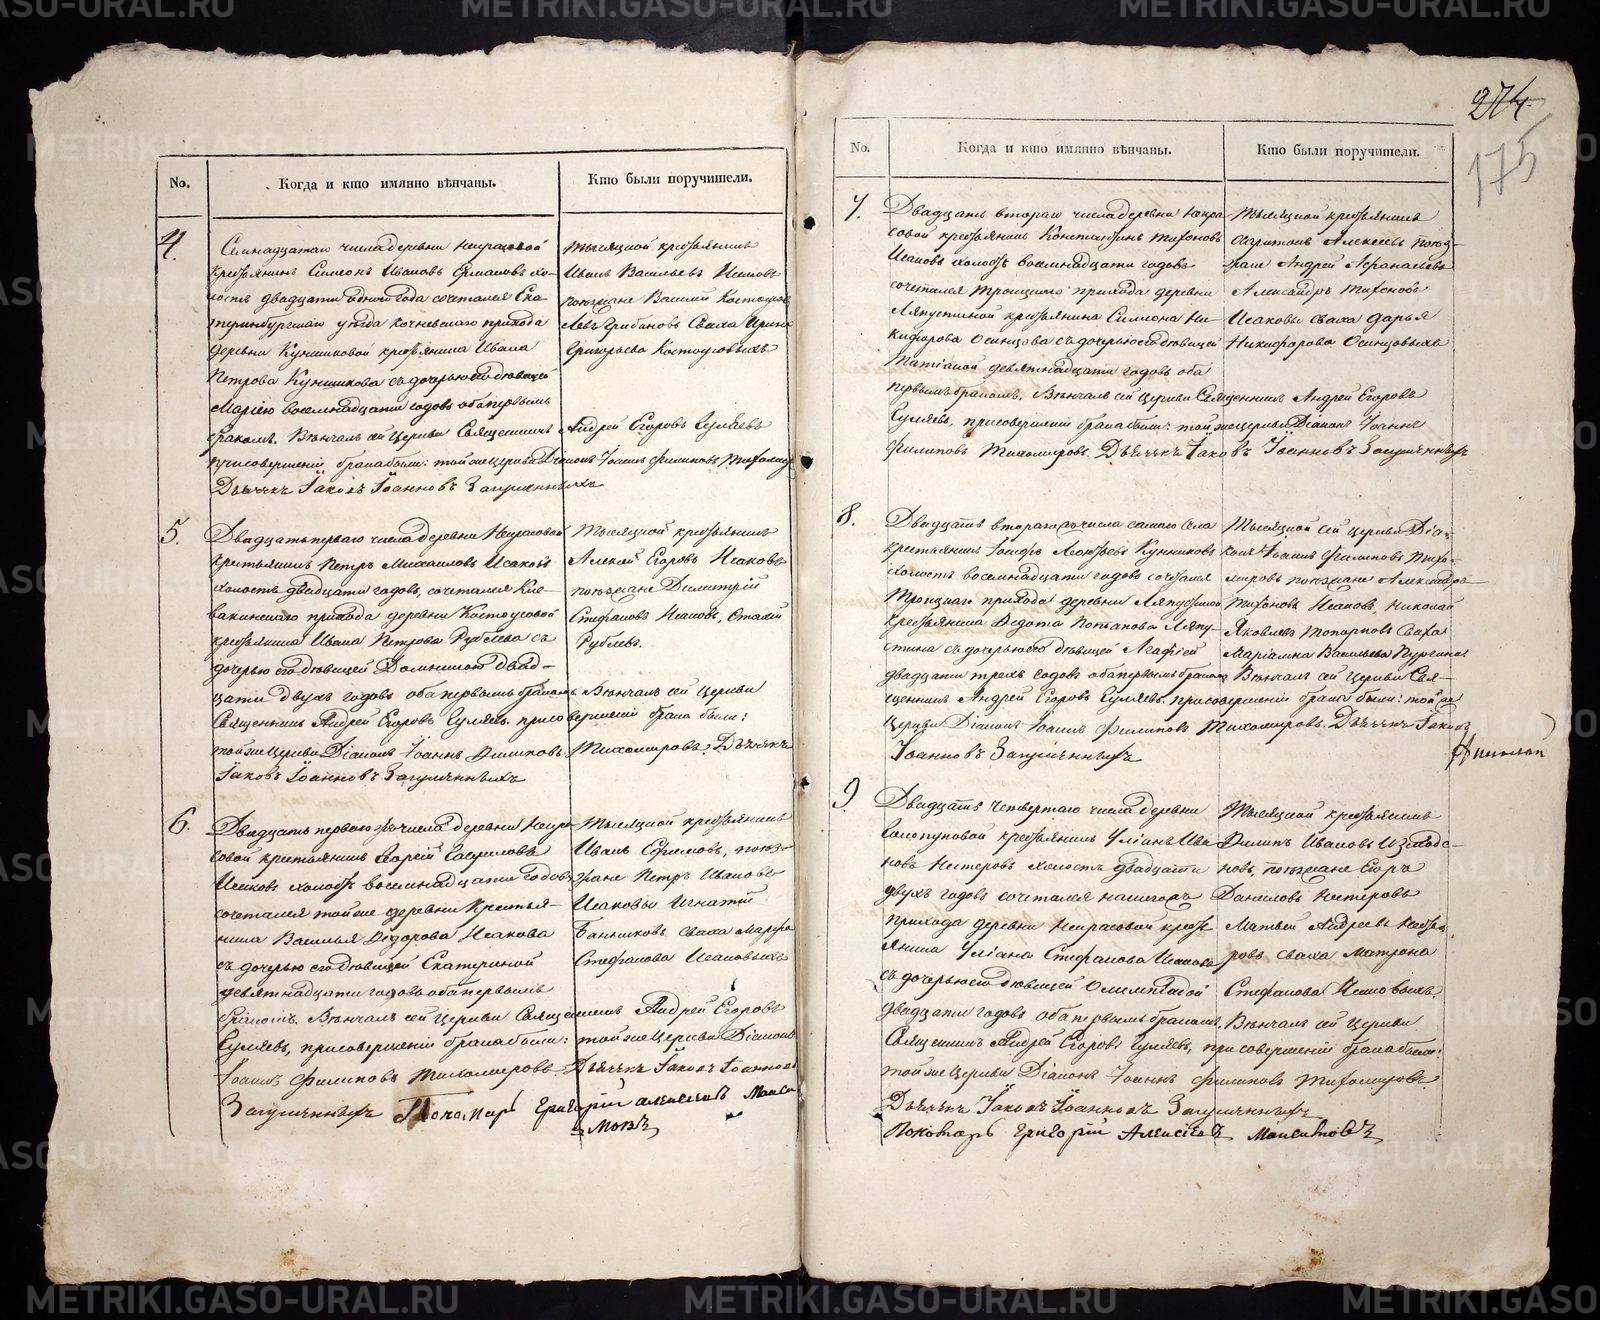 No. Когда и кто имянно вѣнчаны. Кто были поручители.
4.
Семнадцатаго числа деревни Некрасовой
крестьянинъ Симеонъ Ивановъ хо-
лостъ двадцати одного года сочетался Ека-
теринбургскаго уѣзда кочневскаго прихода
деревни Кунщиковой крестьянина Ивана
Петрова Кунщикова съ дочерью его дѣвицей
Маріею восемнадцати годовъ оба первымъ
бракомъ. Вѣнчалъ сей Церкви Священникъ Андрей Егоровъ
при совершеніи брака были: той же Церкви Діаконъ Іоаннъ Филиповъ Тихомировъ
Дьячекъ Іаковъ Іоанновъ
Тысяцкой крестьянинъ
Иванъ Васильевъ Исаковъ
поѣзжане Василій
Левъ Грибановъ Сваха Ирина
Григорьева
5.
Двадцать перваго числа деревни Некрасовой
крестьянинъ Петръ Михаиловъ Исаковъ
холостъ двадцати годовъ, сочетался
прихода деревни Костоусовой
крестьянина Ивана Петрова Рублева съ
дочерью его дѣвицей Домникою двад-
цати двухъ годовъ оба первымъ бракомъ Вѣнчалъ сей Церкви
Священникъ Андрей Егоровъ при совершеніи брака были:
той же Церкви Діаконъ Іоаннъ Филиповъ Тихомировъ. Дьячекъ
Іаковъ Іоанновъ
Тысяцкой крестьянинъ
Алексѣй Егоровъ Исаковъ
поѣзжане Димитрій
Стефановъ Исаковъ,
Рублевъ.
6.
Двадцать перваго числа деревни Некра-
совой крестьянинъ Георгій Гавриловъ
Исаковъ холостъ восемнадцати годовъ
сочетался той же деревни Крестья-
нина Василья Федорова Исакова
съ дочерью его дѣвицей Екатериной
девятнадцати годовъ оба первымъ
бракомъ. Вѣнчалъ сей Церкви Священникъ Андрей Егоровъ
при совершеніи брака были: той же Церкви Діаконъ
Іоаннъ Филиповъ Тихомировъ Дьячекъ Іаковъ Іоанновъ
Пономарь Григорій Алексѣевъ Макси
мовъ
Тысяцкой крестьянинъ
Иванъ Ефимовъ, поѣз-
жане Петръ Ивановъ
Исаковы Игнатій
Банниковъ сваха Марфа
Стефанова Исаковыхъ
274
175
No. Когда и кто имянно вѣнчаны. Кто были поручители.
7.
Двадцать втораго числа деревни Некра
совой крестьянинъ Константинъ Тихоновъ
Исаковъ холостъ восемнадцати годовъ
сочетался Троицкаго прихода деревни
Ляпустиной крестьянина Симиона Ни-
кифорова Осинцова съ дочерью его дѣвицей
Татіаной девятнадцати годовъ оба
первымъ бракомъ. Вѣнчалъ сей Церкви Священникъ Андрей Егоровъ
при совершеніи брака были: той же Церкви Діаконъ Іоаннъ
Филиповъ Тихомировъ. Дьячекъ Іаковъ Іоанновъ
Тысяцкой крестьянинъ
Харитонъ Алексѣевъ поѣз-
жане Андрей Афанасьевъ
Александръ Тихоновъ
Исаковы сваха Дарья
Никифорова Осинцовыхъ
8.
Двадцать втораго числа самаго села
крестьянинъ Іосифъ Леонтьевъ Кунщиковъ
холостъ восемнадцати годовъ сочетался
Троицкаго прихода деревни Ляпустиной
крестьянина Федота Потапова Ляпу-
стина съ дочерью его дѣвицей Агафіей
двадцати трехъ годовъ оба первымъ бракомъ Вѣнчалъ сей Церкви Свя-
щенникъ Андрей Егоровъ при совершеніи брака были: той же
Церкви Діаконъ Іоаннъ Филиповъ Тихомировъ. Дьячекъ Іаковъ
Іоанновъ
Тысяцкой сей Церкви Діа-
конъ Іоаннъ Филиповъ Тихо-
мировъ поѣзжане Александръ
Тихоновъ Исаковъ, Николай
Яковлевъ Топорковъ Сваха
Маріамна Васильева
9.
Двадцать четвертаго числа деревни
Голопуповой крестьянинъ Уліанъ Ива-
новъ Нестеровъ холостъ двадцати
двухъ годовъ сочетался нашего
прихода деревни Некрасовой кресть
янина Уліана Стефанова Исакова
съ дочерью его дѣвицей Олимпіадой
двадцати годовъ оба первымъ бракомъ. Вѣнчалъ сей Церкви
Священникъ Андрей Егоровъ при совершеніи брака были:
той же Церкви Діаконъ Іоаннъ Филиповъ Тихомировъ.
Дьячекъ Іаковъ Іоанновъ
Пономарь Григорій Алексѣевъ Максимовъ
Тысяцкой крестьянинъ
Филипъ Ивановъ
новъ, поѣзжане Егоръ
Даниловъ Нестеровъ
Матвѣй Андреевъ
ровъ сваха Матрона
Стефанова Исаковыхъ.
METRIKI.GASO-URAL.RU